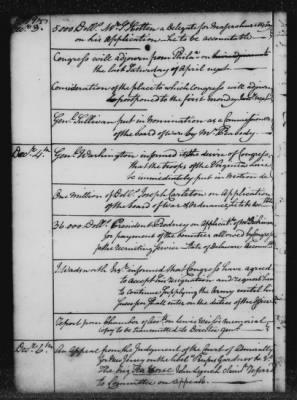 5000 Doll.s Mr. S. Holten a delegate for Massachusetts
on his Application. He to be accountable
Congress will adjourn from Philad.a on
the last Saturday of April next
Consideration of the place to which Congress will adjourn
postponed to the first monday in
Gen.l Sullivan put in nomination as a Commissioner
of the board of war by Mr. Peabody
Dec.r 4.th
Gen.l Washington informed the desire of Congress
that the troops of the Virginia
be immediately put in motion
One Million of Doll.s Joseph Carleton on Application
of the board of War & Ordnance, he to be
36.000 Doll.s President Rodney on Applicat.n of Mr. Dickinson
for payment of the bounties allowed by Congress
for the recruiting Service State of Delaware
J. Wadsworth Esq.r informed that Congress have agreed
to accept his resignation and request him
to continue supplying the Army until his
Successor shall enter on the duties of the Office
Report from Chamber of memorial
to be transmitted to Director Gen.l
Dec.r 6.th
An Appeal from the Judgment of the Court of Admiralty
for New Jersey on the libel Rufus Gardner &c vs
The Brig Sea Horse claim.t referred
to Committee on Appeals.